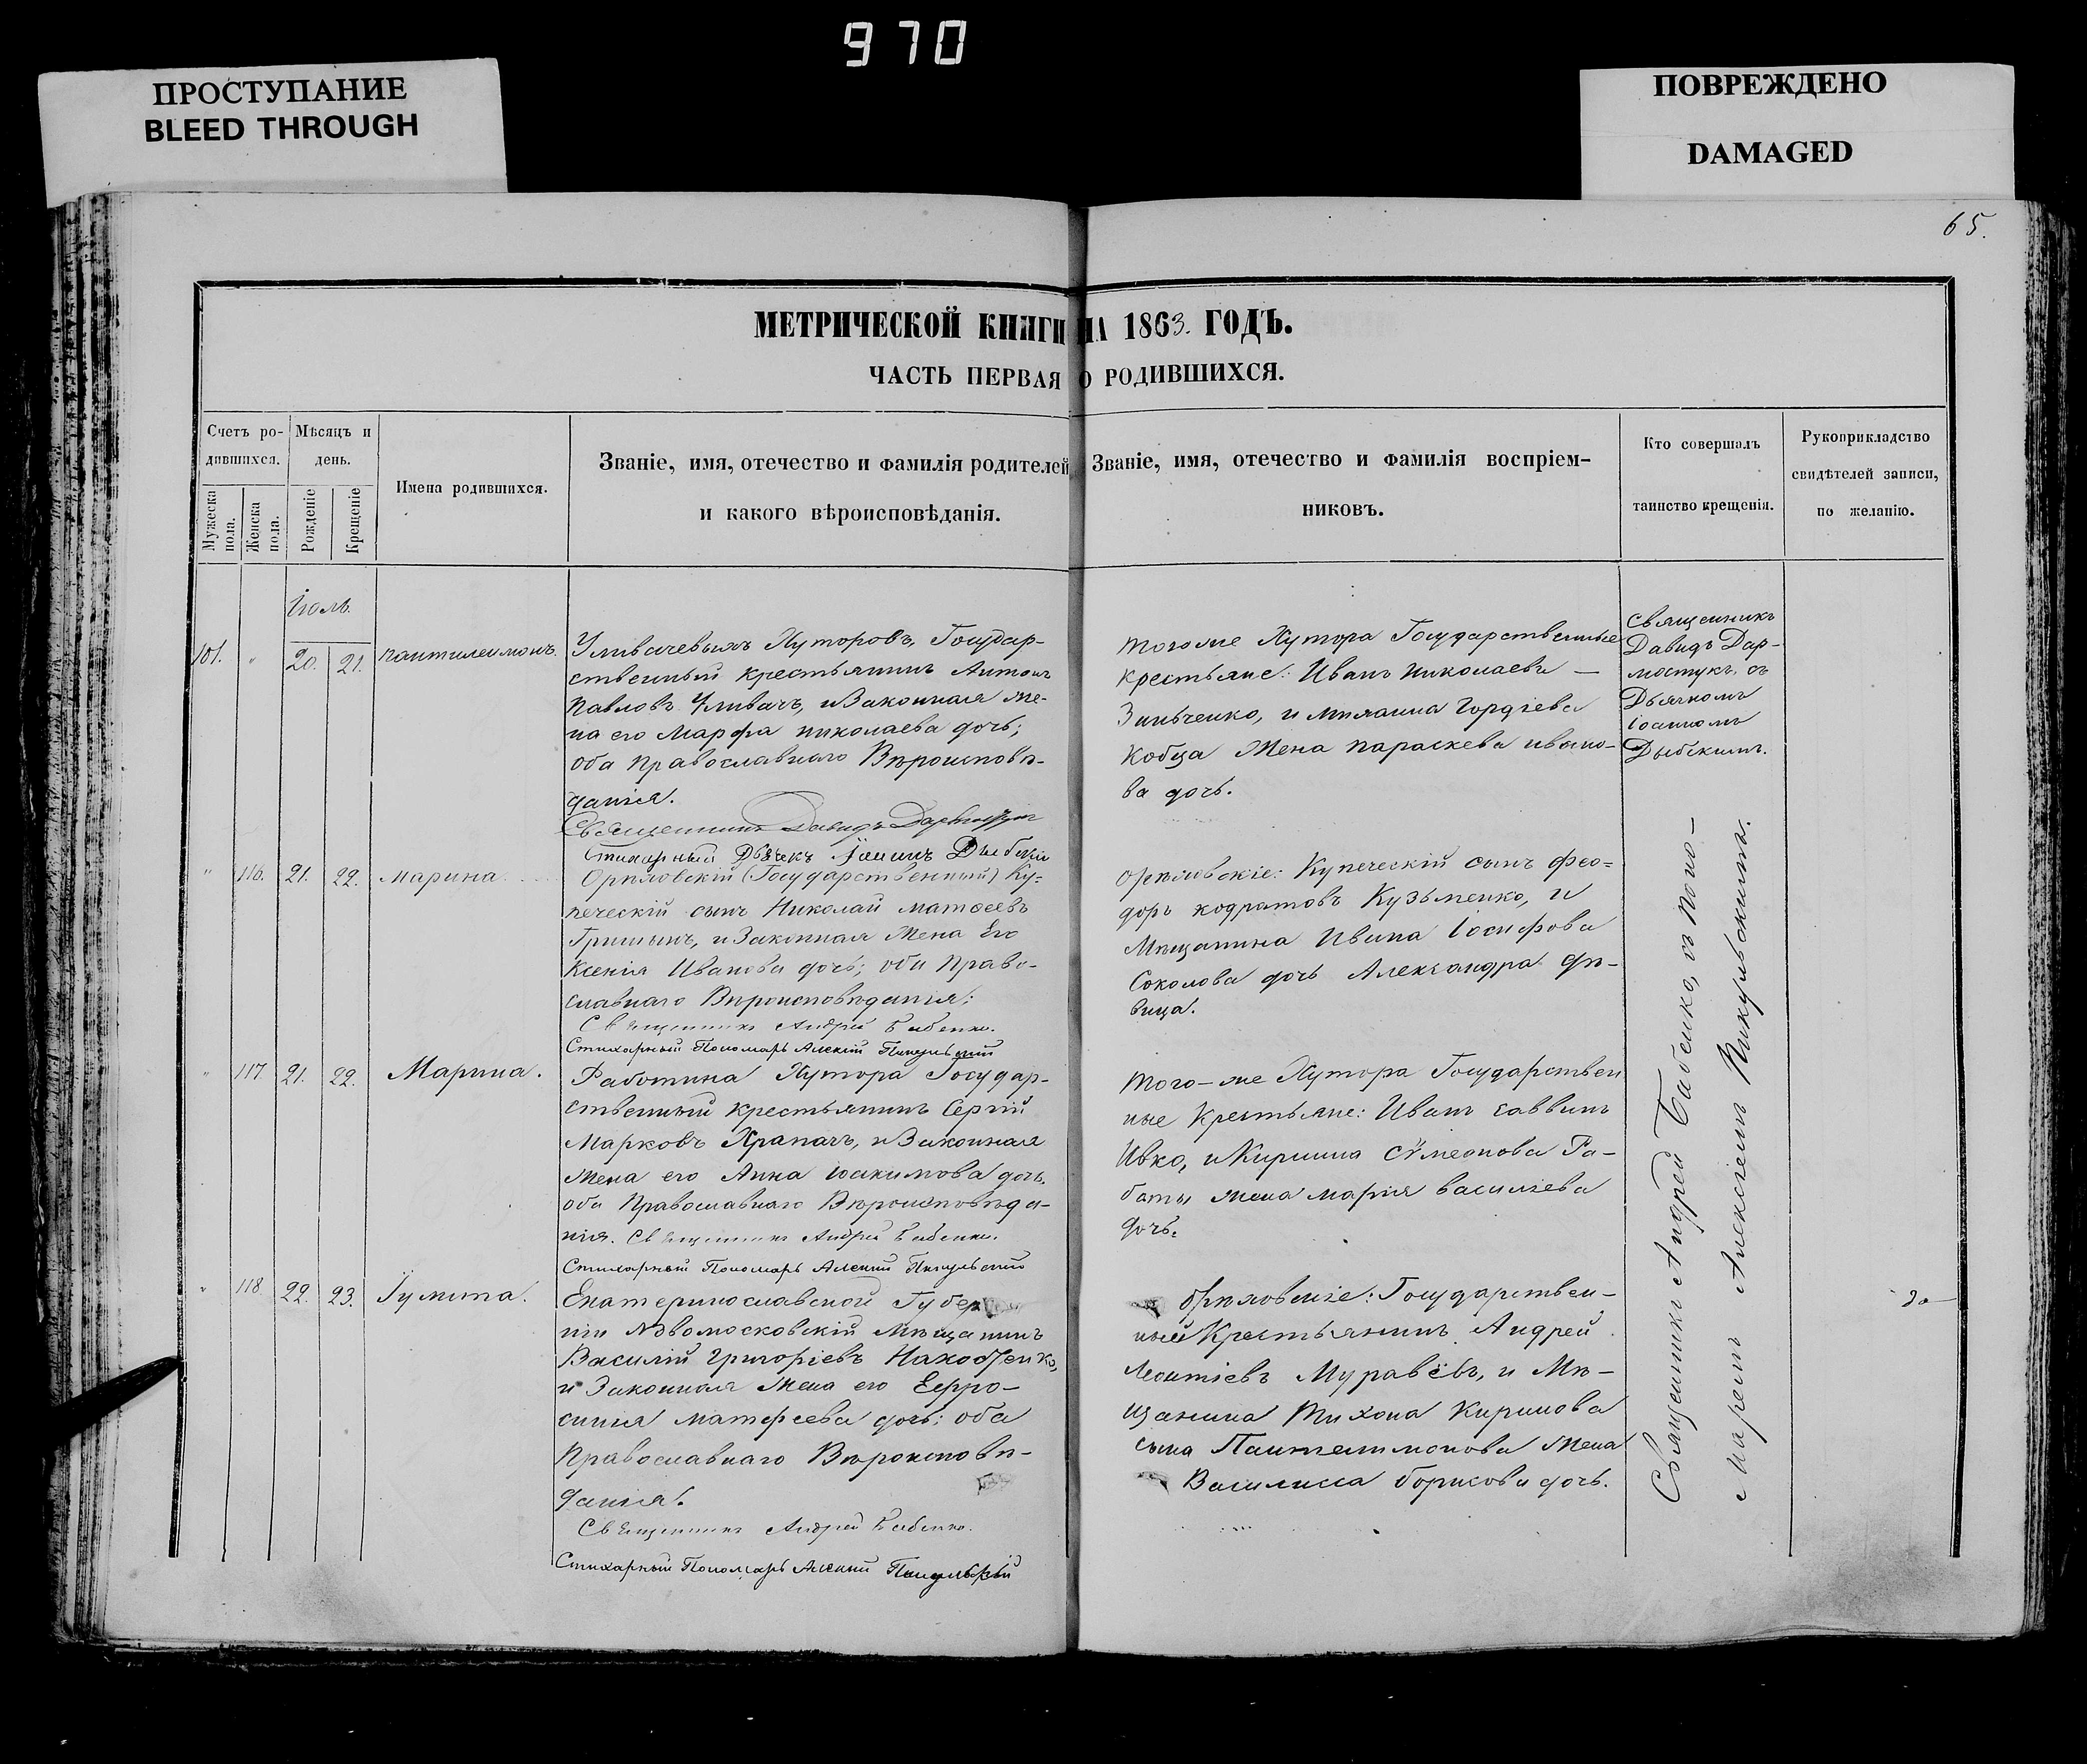 970
ПРОСТУПАНИЕ
BLEED THROUGH
ПОВРЕЖДЕНО
DAMAGED
65.
МЕТРИЧЕСКОЙ КНИГИ НА 1863. ГОДЪ.
ЧАСТЬ ПЕРВАЯ О РОДИВШИХСЯ.
Счетъ ро-
дившихся.
Мужеска
пола.
Женска
пола.
Мѣсяцъ и
день.
Рожденіе
Крещеніе
Имена родившихся.
Званіе, имя, отечество и фамилія родителей
и какого вѣроисповѣданія.
Званіе, имя, отечество и фамилія воспріем-
никовъ.
Кто совершалъ
таинство крещенія.
Рукоприкладство
свидѣтелей записи,
по желанію.
Іюль
101. " 20. 21. Пантилеимонъ.
Хуторовъ, Государ-
ственный крестьянинъ Антонъ
Павловъ и Законная же-
на его Марфа Николаева дочь;
оба Православнаго Вѣроисповѣ-
данія.
Священникъ Давидъ
Стихарный Дьячекъ Іоаннъ Дыбскій
Тогоже Хутора Государственные
крестьяне: Иванъ Николаевъ —
Зинченко, и Гордіева
Кобца Жена Параскева ивано-
ва дочь.
Священникъ
Давидъ Дар-
мостукъ, съ
Дьячкомъ
Іоанномъ
Дыбскимъ.
" 116. 21. 22. Марина.
Орѣховскій (Государственный) Ку-
печескій сынъ Николай Матѳеевъ
Гришинъ, и Законная Жена Его
Ксенія Иванова дочь; оба Право-
славнаго Вѣроисповѣданія:
Священникъ Андрей Бабенко.
Стихарный Пономарь Алексій Пикульскій
Орѣховскіе: Купеческій сынъ Фео-
доръ кодратовъ Кузьменко, и
Мѣщанина Ивана Іосифова
Соколова дочь Александра дѣ-
вица.
" 117. 21. 22. Марина.
Работина Хутора Государ-
ственный крестьянинъ Сергій
Марковъ Храпачъ, и Законная
Жена его Анна іоакимова дочь.
оба Православнаго Вѣроисповѣда-
нія. Священникъ Андрей Бабенко.
Стихарный Пономарь Алексій Пикульскій
Того-же Хутора Государствен
ные Крестьяне: Иванъ Саввинъ
Ивко, и Кирилла Сѵмеонова Ра-
боты жена Марія Василіева
дочь.
" 118. 22. 23. Іулита.
Екатеринославской Губер
ніи Новомосковскій Мѣщанинъ
Василій Григоріевъ Находченко,
и Законная Жена его Евфро-
синія Матфеева дочь; оба
Православнаго Вѣроисповѣ-
данія.
Священникъ Андрей Бабенко.
Стихарный Пономарь Алексій Пикульскій
Орѣховскіе: Государствен-
ный Крестьянинъ Андрей
Леонтіевъ Муравёвъ, и Мѣ-
щанина Тихона Кирилова
сына Пантелимонова Жена
Василисса Борисова дочь.
Священникъ Андрей Бабенко, съ Поно-
маремъ Алексіемъ Пикульскимъ.